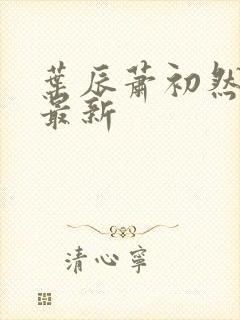 葉辰蕭初然
最新
清心寧